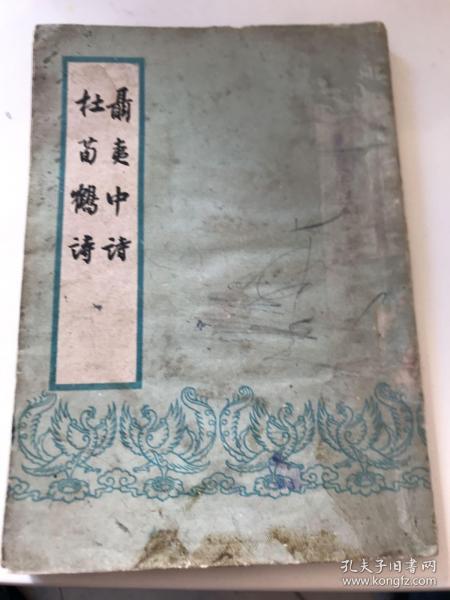 聶夷中诗
杜荀鹤诗
孔夫子旧书网
www.kongfz.com